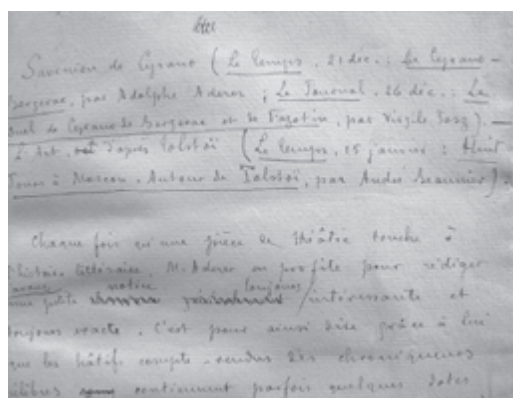 Savinien de Cyrano (Le Temps, 21 déc. : Le Cyrano-
Bergerac, par Adolphe Aderer ; Le Journal, 26 déc. : Le
de Cyrano de Bergerac et de Fagotin, par Virgile Josz). —
L'Art, d'après Tolstoï (Le Temps, 15 janvier : Huit
Jours à Moscou. Autour de Tolstoï, par André Beaunier). —
Chaque fois qu'une pièce de théâtre touche à
l'histoire littéraire, M. Aderer en profite pour rédiger
une petite notice toujours intéressante et
toujours exacte. C'est pour ainsi dire grâce à lui
que les hâtifs compte-rendus des chroniqueurs
célèbres contiennent parfois quelques dates